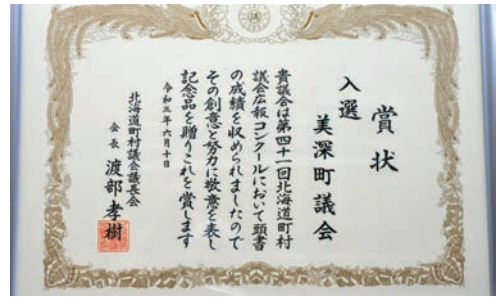 賞状
入選
美深町議会
貴議会は第四十一回北海道町村
議会広報コンクールにおいて頭書
の成績を収められましたので
その創意と努力に敬意を表し
記念品を贈りこれを賞します
令和三年六月十日
北海道町村議会議長会
会長 渡部孝樹